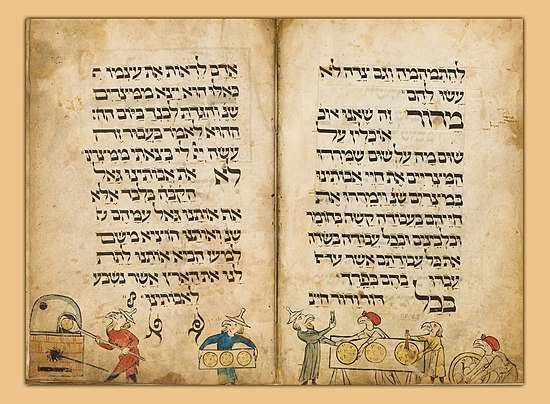 להתמהמה וגם צדה לא
עשו להם
מרור זה שאנו
אוכלין על
שום מה על שום שמררו
המצריים את חיי אבותינו
במצרים שנ' וימררו את
חייהם בעבודה קשה בחומר
ובלבנים ובכל עבודה בשדה
את כל עבודתם אשר
עבדו בהם בפרך
בכל דור ודור חייב
אדם לראות את עצמו
כאילו הוא יצא ממצרים
שנ' והגדת לבנך ביום
ההוא לאמר בעבור זה
עשה יי' לי בצאתי ממצרים
לא את אבותינו גאל
הקב״ה בלבד אלא
אף אותנו גאל עמהם
שנ' ואותנו הוציא משם
למען הביא אותנו לתת
לנו את הארץ אשר נשבע
לאבותינו